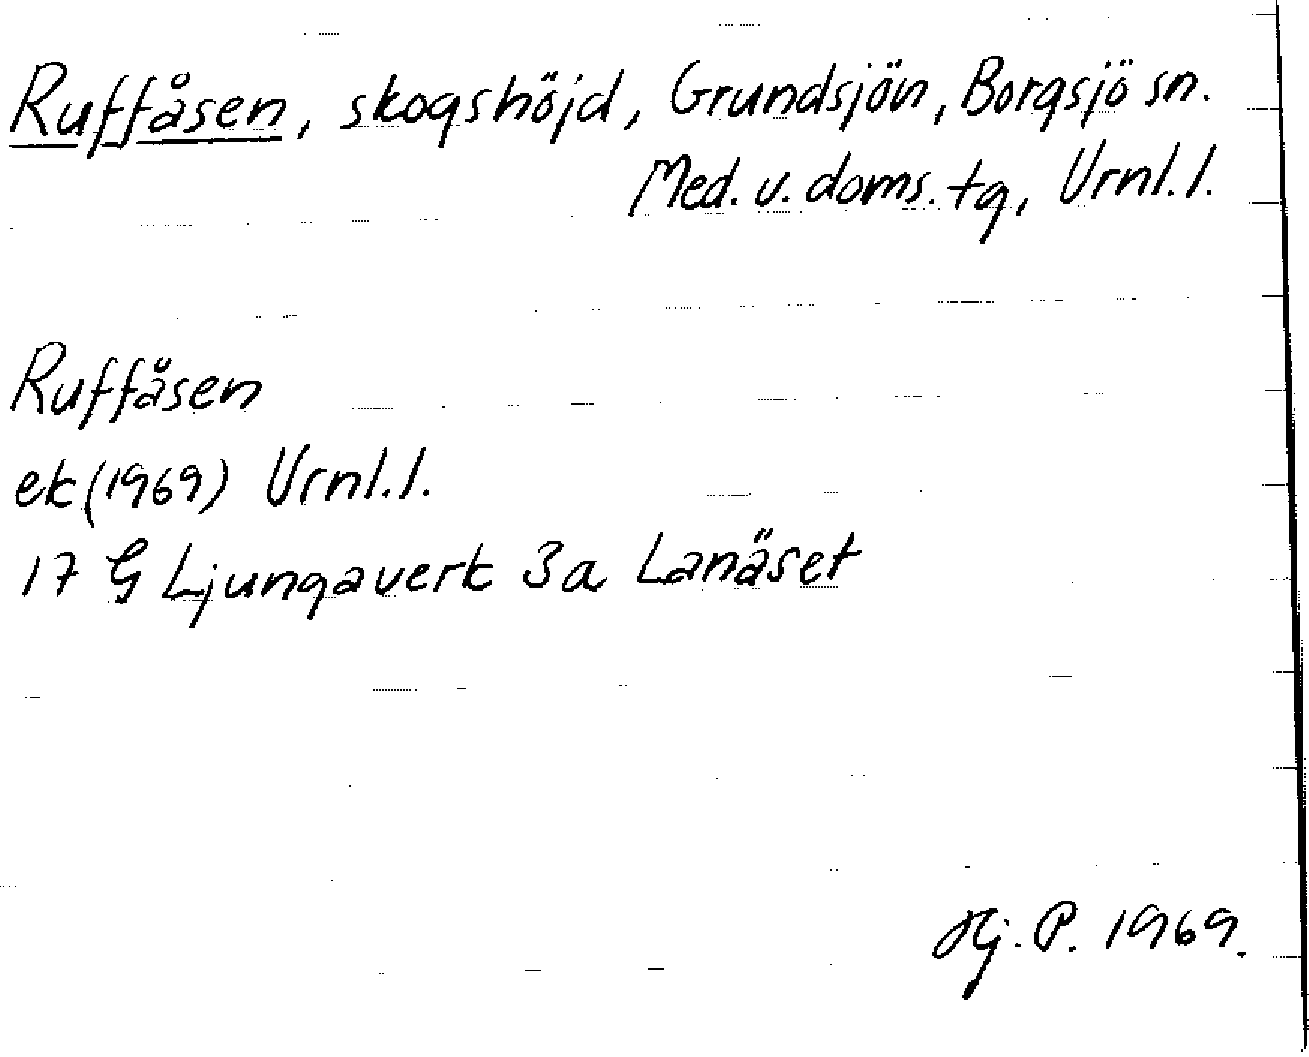 Ruffåsen, skogshöjd, Grundsjön, Borgsjö sn.
Med. v. doms. tg, Vrnl. l.
Ruffåsen
ek (1969) Vrnl. l.
17 G Ljungaverk 3a Lanäset
Hj. P. 1969.